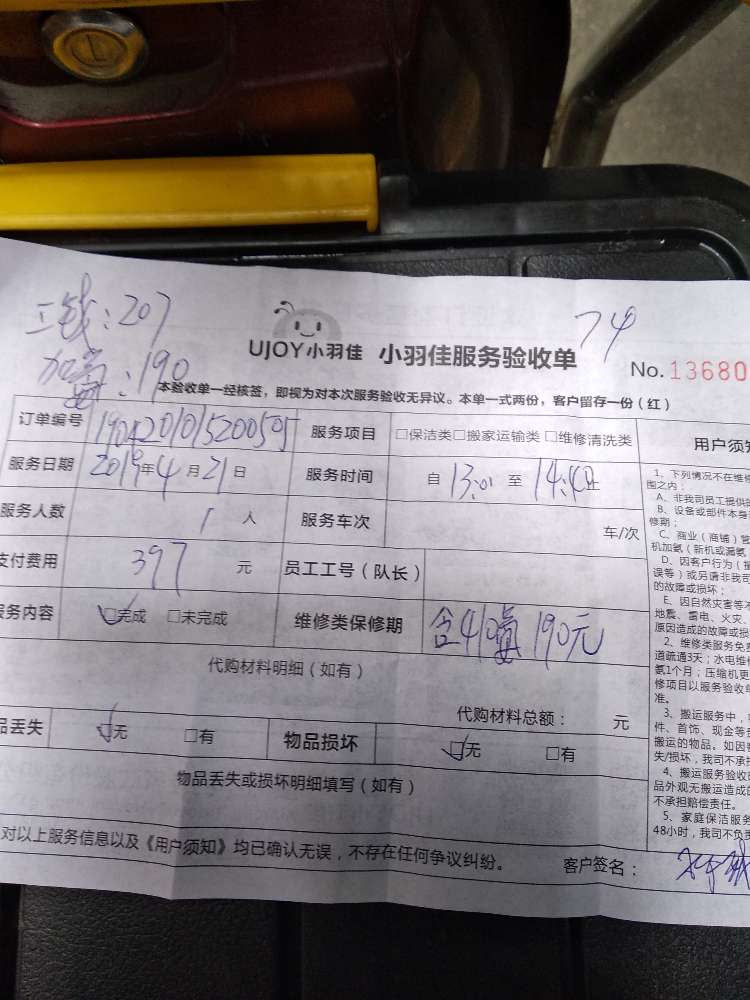 工钱:207
加氟:190
74
UJOY小羽佳 小羽佳服务验收单
No.13680
本验收单一经核签，即视为对本次服务验收无异议。本单一式两份，客户留存一份（红）
订单编号 服务项目 □保洁类□搬家运输类□维修清洗类
服务日期 2019年4月21日 服务时间 自13:01至14:40止
服务人数 1人 服务车次 车/次
支付费用 397元 员工工号（队长）
服务内容 ☑完成 □未完成 维修类保修期 190元
代购材料明细（如有）
代购材料总额： 元
品丢失 ☑无 □有 物品损坏 ☑无 □有
物品丢失或损坏明细填写（如有）
对以上服务信息以及《用户须知》均已确认无误，不存在任何争议纠纷。
客户签名：
用户须知
1、下列情况不在维
围之内：
A、非我司员工提供的
B、设备或部件本身
修期；
C、商业（商铺）管
机加氨（新机或漏氨
D、因客户行为（
误等）或另请非我司
的故障或损坏；
E、因自然灾害等
地震、雷电、火灾、
原因造成的故障或损
2、维修类服务免
道疏通3天；水电维
氨1个月；压缩机更
修项目以服务验收
准。
3、搬运服务中，
件、首饰、现金等
搬运的物品。如因
失/损坏，我司不承
4、搬运服务验收
品外观无搬运造成的
不承担赔偿责任。
5、家庭保洁服务
48小时，我司不负责